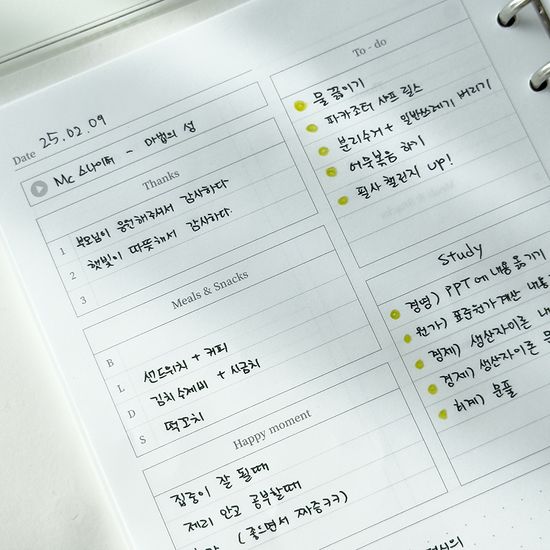 Date 25.02.09
Mc 스나이퍼 - 마법의 성
Thanks
1 부모님이 응원해주셔서 감사하다
2 햇빛이 따뜻해서 감사하다.
3
Meals & Snacks
B
L 샌드위치 + 커피
D 김치수제비 + 시금치
S 떡꼬치
Happy moment
집중이 잘 될때
제리 안고 공부할때
(좋으면서 짜증ㅋㅋ)
To - do
물 끓이기
파카조터 샤프 릴스
분리수거 + 일반쓰레기 버리기
어묵볶음 하기
필사 챌린지 up!
Study
경영) PPT에 내용 옮기기
원가) 표준원가계산 내용
경제) 생산자이론 내
경제) 생산자이론 문
회계) 분풀